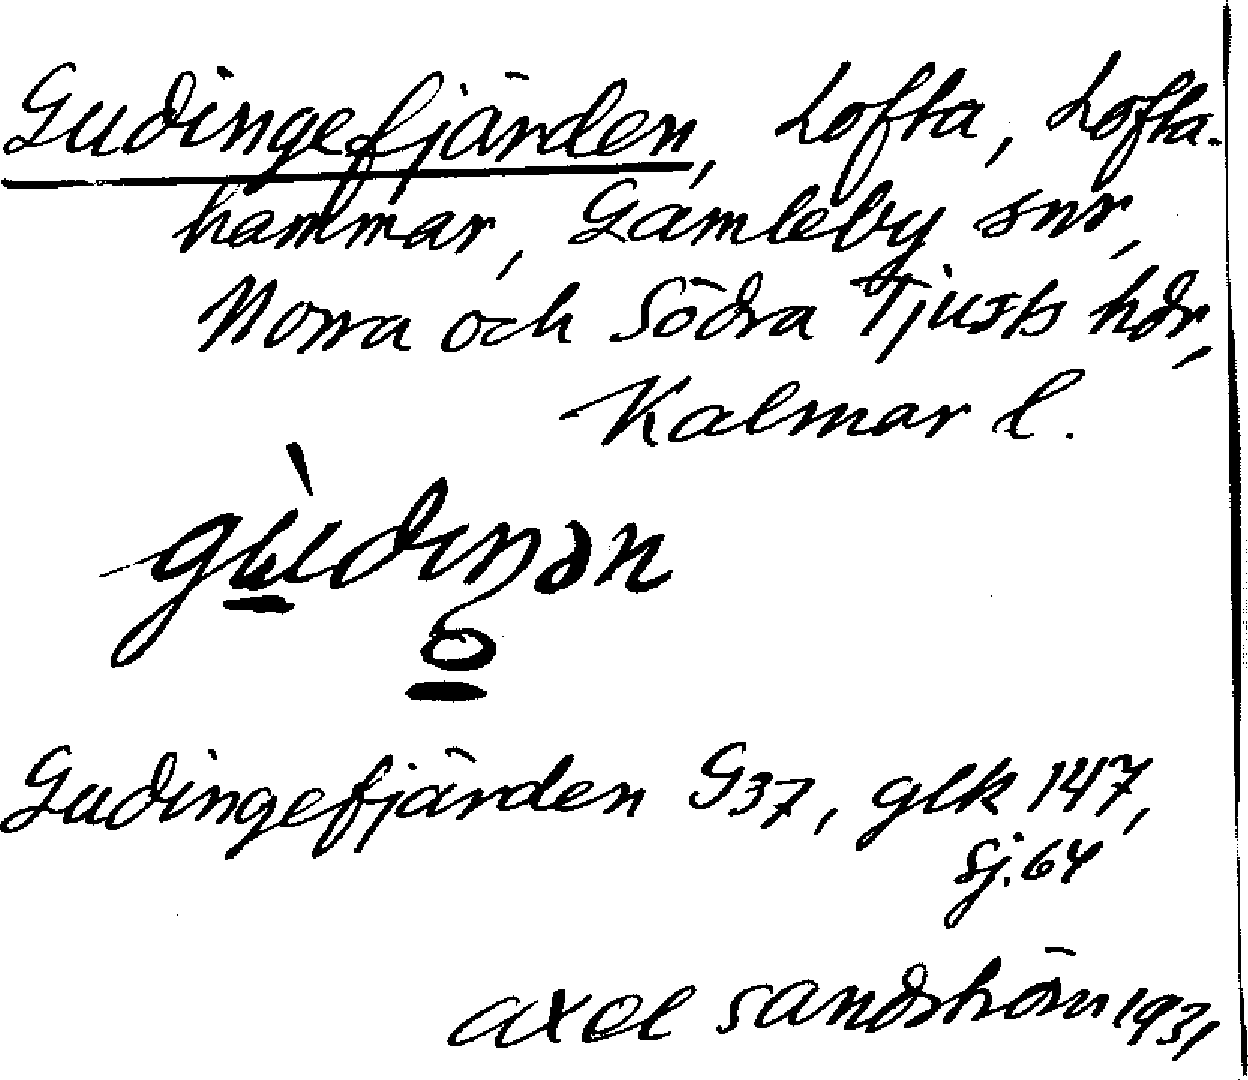 Gudingefjärden, Lofta, Lofta-
hammar, Gamleby snr,
Norra och Södra Tjusts hdr,
Kalmar l.
Gudingefjärden G37, glk 147,
Sj. 64
Axel Sandström 1931